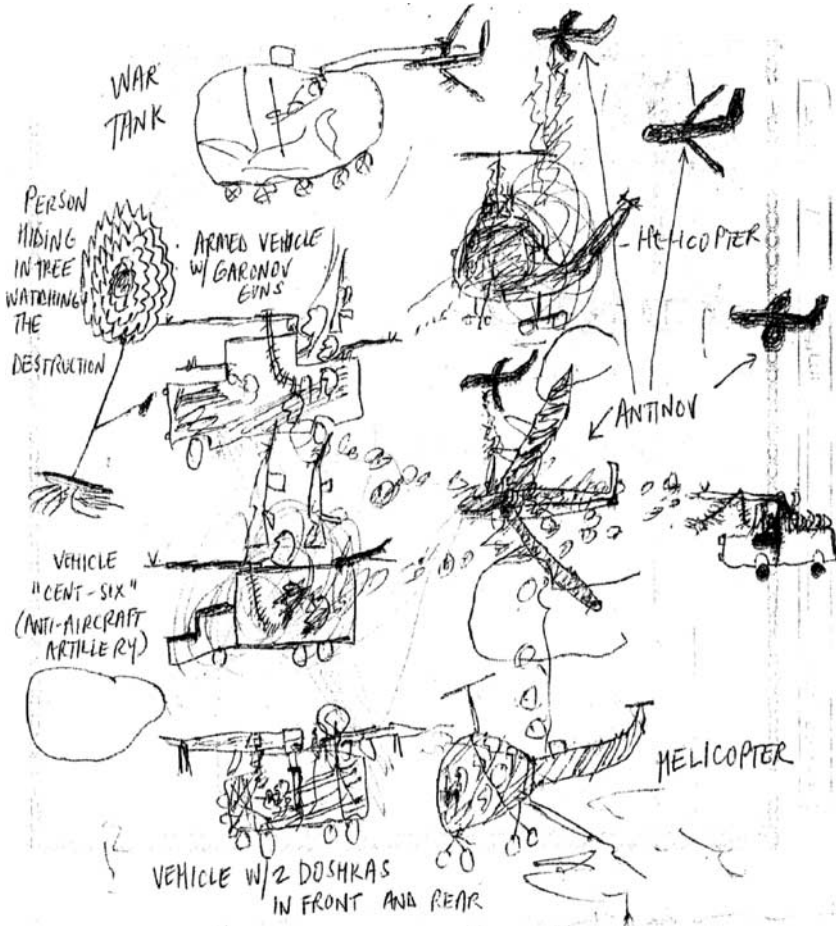 WAR
TANK
PERSON
HIDING
IN TREE
WATCHING
THE
DESTRUCTION
ARMED VEHICLE
W/ GARONOV
GUNS
HELICOPTER
ANTINOV
VEHICLE
"CENT-SIX"
(ANTI-AIRCRAFT
ARTILLERY)
HELICOPTER
VEHICLE W/2 DOSHKAS
IN FRONT AND REAR